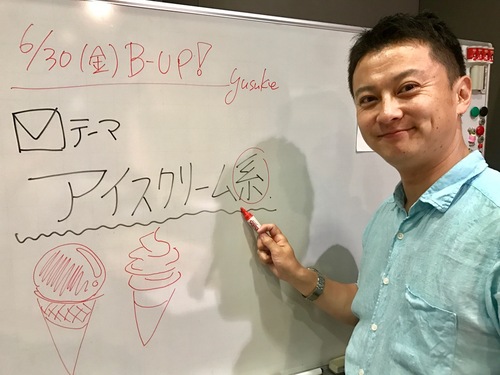 6/30(金)B-UP!
yusuke
テーマ
アイスクリーム系